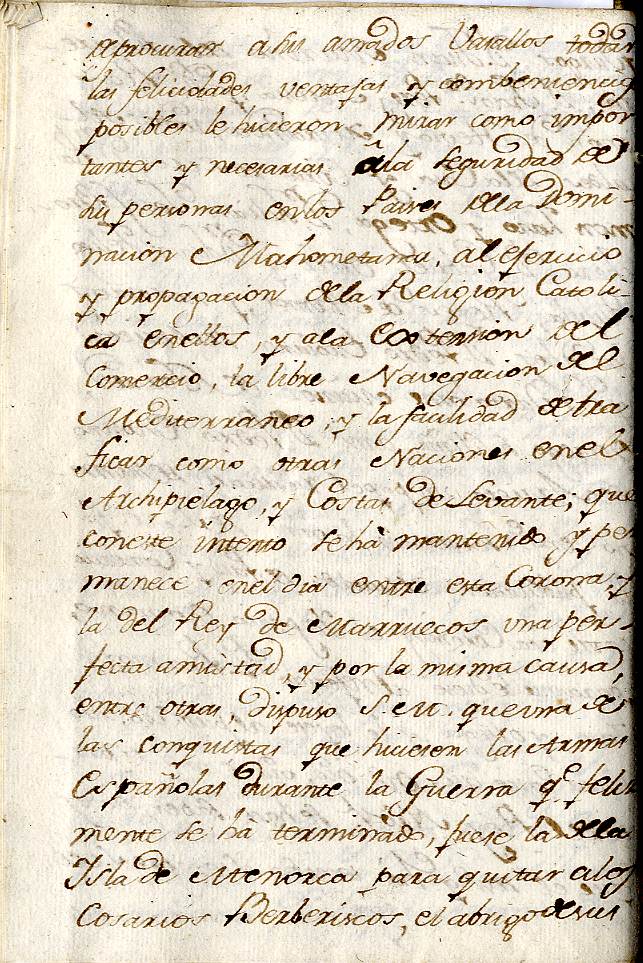 deprocurar a sus amados Vasallos todas
las felicidades ventajas y combeniencias
posibles le hicieron mirar como impor
tantes y necesarias âla seguridad de
sus personas enlos Paises dela Domi-
nacion Mahometana, al ejercicio
y propagacion dela Religion Catoli-
ca enellos, y ala Extension del
Comercio, la libre Navegacion del
Mediterraneo, y la facilidad detra
ficar como otras Naciones enel
Archipielago, y Costas de Levante; que
coneste intento se há mantenido y per
manece enel dia entre esta Corona y
la del Rey de Marruecos una per-
fecta amistad, y por la misma causa,
entre otras, dispuso S. M. que una de
las conquistas que hiciesen las Armas
Españolas durante la Guerra qe. feliz
mente se há terminado, fuese la dela
Isla de Menorca para quitar alos
Cosarios Berberiscos, el abrigo desus